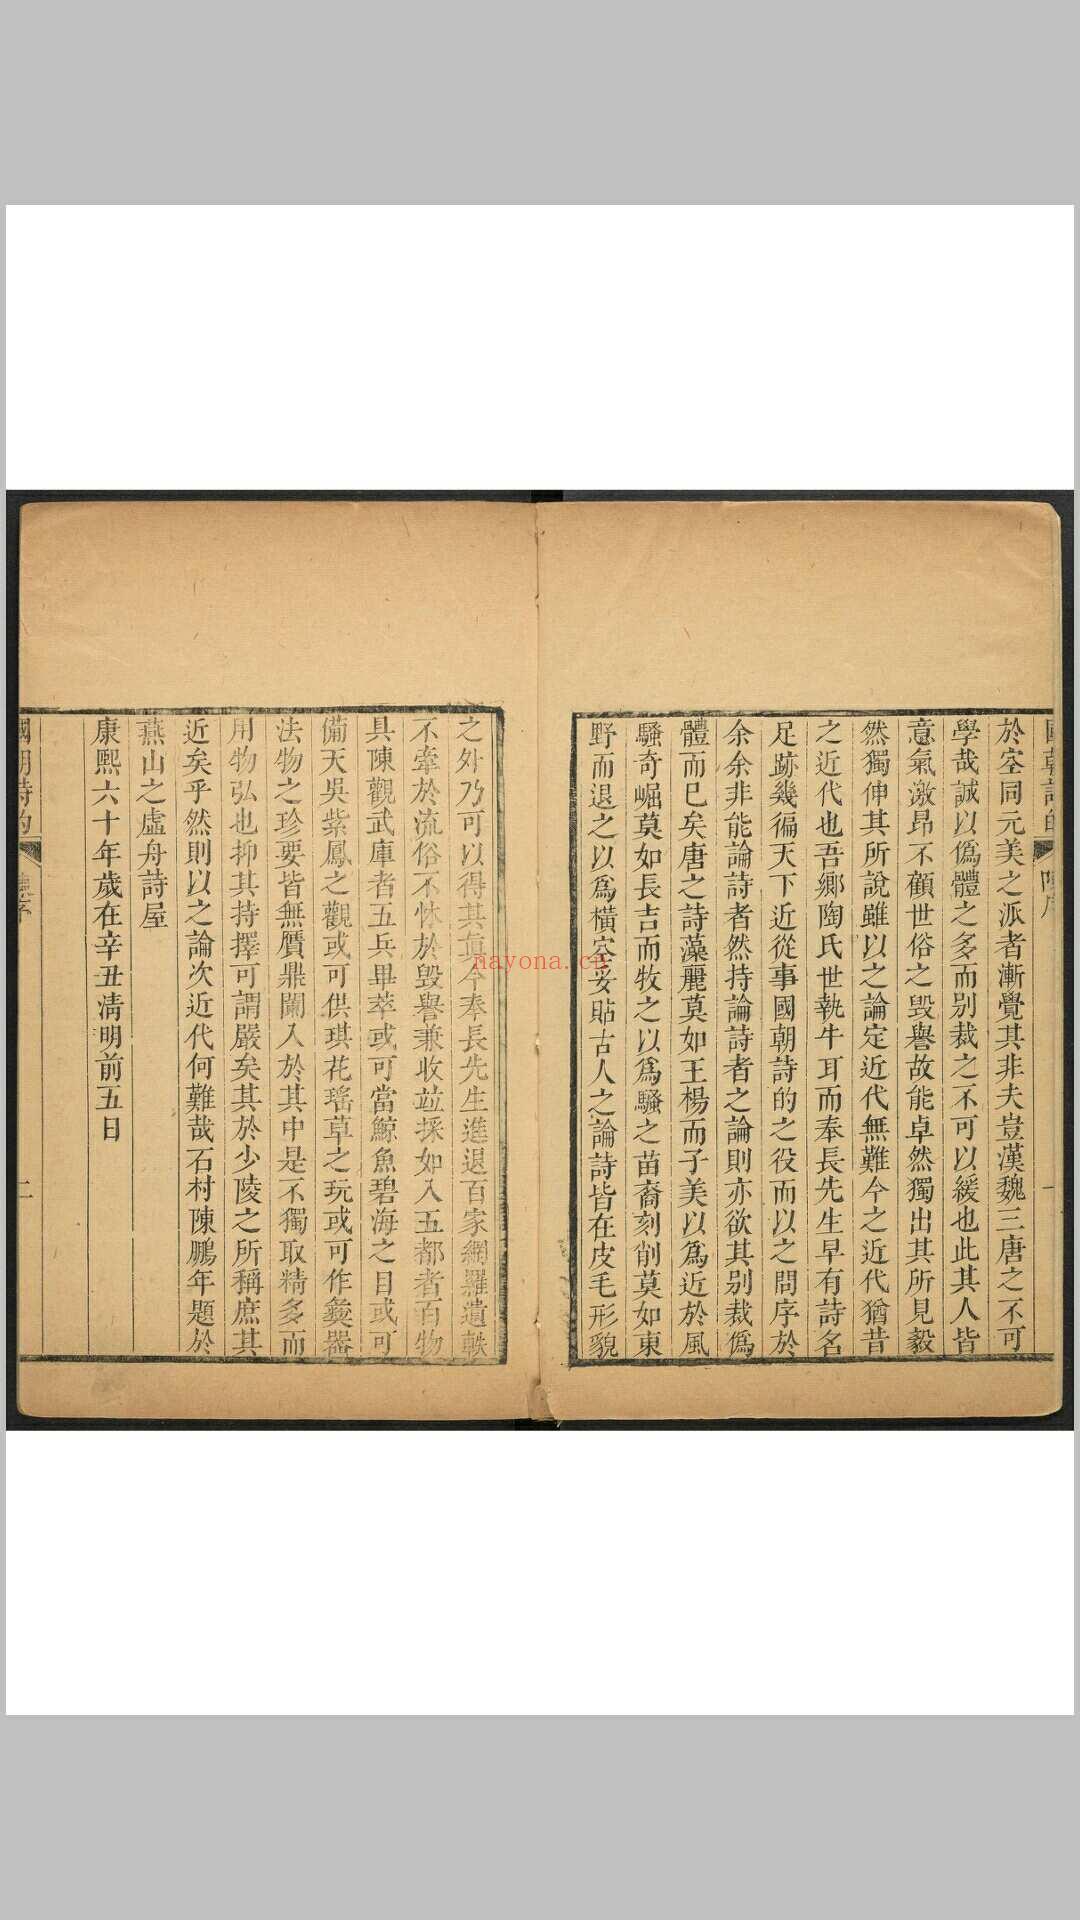 國朝詩的 陳序 一
於空同元美之派者漸覺其非夫豈漢魏三唐之不可
學哉誠以僞體之多而别裁之不可以緩也此其人皆
意氣激昂不顧世俗之毀譽故能卓然獨出其所見毅
然獨伸其所說雖以之論定近代無難今之近代猶昔
之近代也吾鄉陶氏世執牛耳而奉長先生早有詩名
足跡幾徧天下近從事國朝詩的之役而以之問序於
余余非能論詩者然持論詩者之論則亦欲其别裁僞
體而已矣唐之詩藻麗莫如王楊而子美以爲近於風
騷奇崛莫如長吉而牧之以爲騷之苗裔刻削莫如東
野而退之以爲橫空妥貼古人之論詩皆在皮毛形貌
之外乃可以得其眞今奉長先生進退百家網羅遺軼
不牽於流俗不怵於毀譽兼收竝採如入五都者百物
具陳觀武庫者五兵畢萃或可當鯨魚碧海之目或可
備天吳紫鳳之觀或可供琪花瑤草之玩或可作彝器
法物之珍要皆無贋鼎闌入於其中是不獨取精多而
用物弘也抑其持擇可謂嚴矣其於少陵之所稱庶其
近矣乎然則以之論次近代何難哉石村陳鵬年題於
燕山之虛舟詩屋
康熙六十年歲在辛丑淸明前五日
國朝詩的
nayona.cn